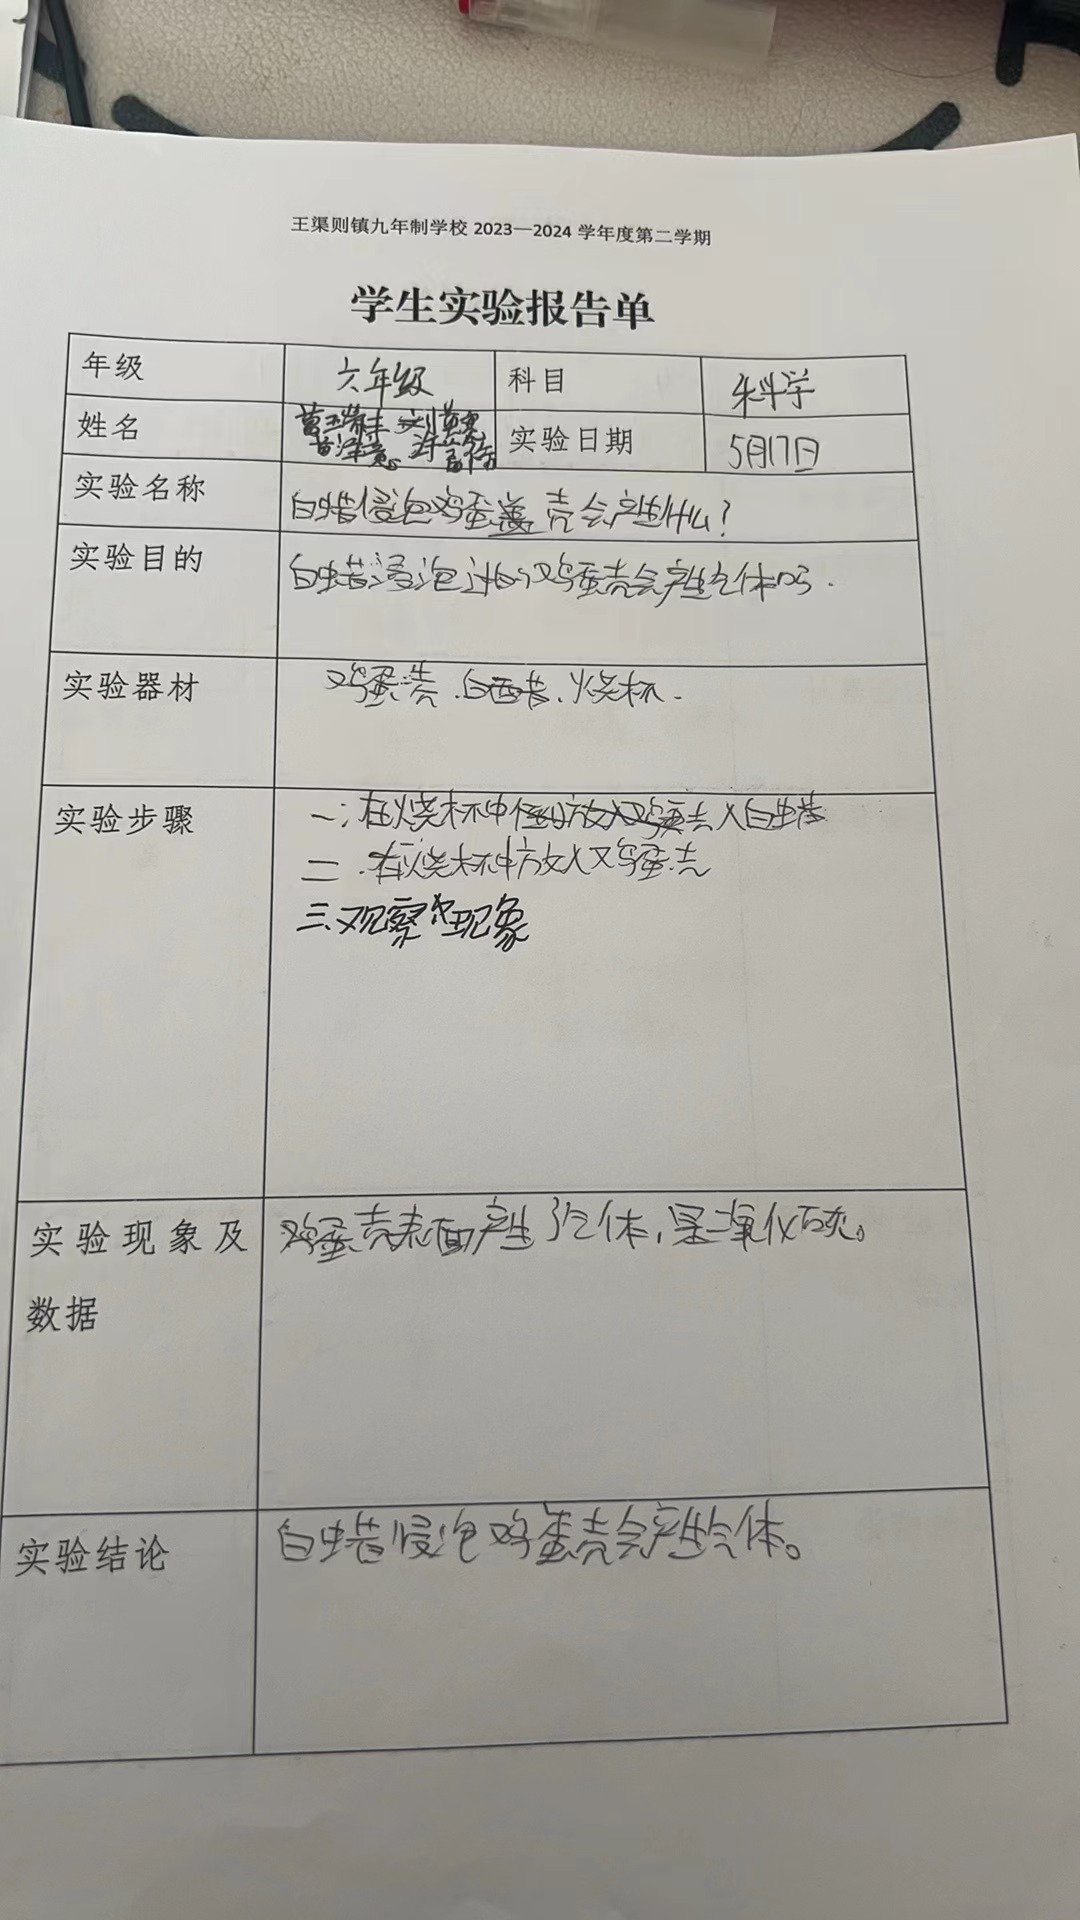 王渠则镇九年制学校 2023—2024 学年度第二学期
学生实验报告单
年级 六年级 科目 科学
姓名 实验日期 5月17日
实验名称 白蜡侵泡鸡蛋壳会产生什么?
实验目的 白蜡浸泡过的鸡蛋壳会产生气体吗.
实验器材 鸡蛋壳.白醋、烧杯.
实验步骤 一:在烧杯中倒入白蜡
二.在烧杯中放入鸡蛋壳
三.观察现象
实验现象及 鸡蛋壳表面产生了气体,是二氧化碳。
数据
实验结论 白蜡侵泡鸡蛋壳会产生气体。